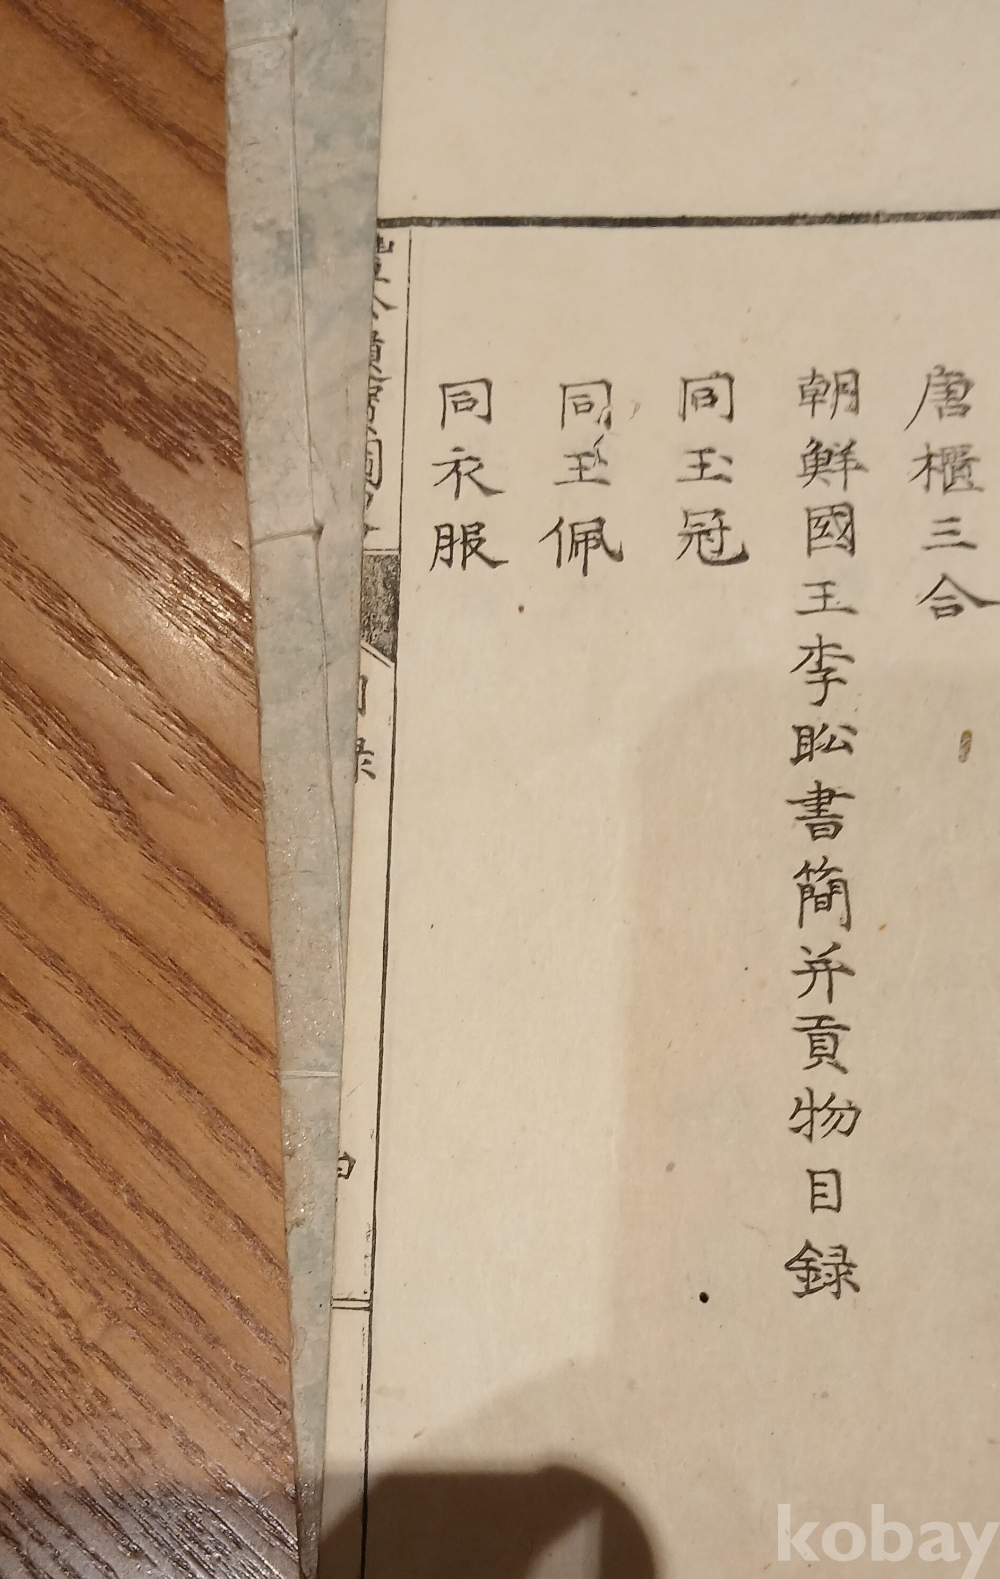 唐櫃三合
朝鮮國王李昖書簡并貢物目録
同玉冠
同玉佩
同衣服
目録
kobay